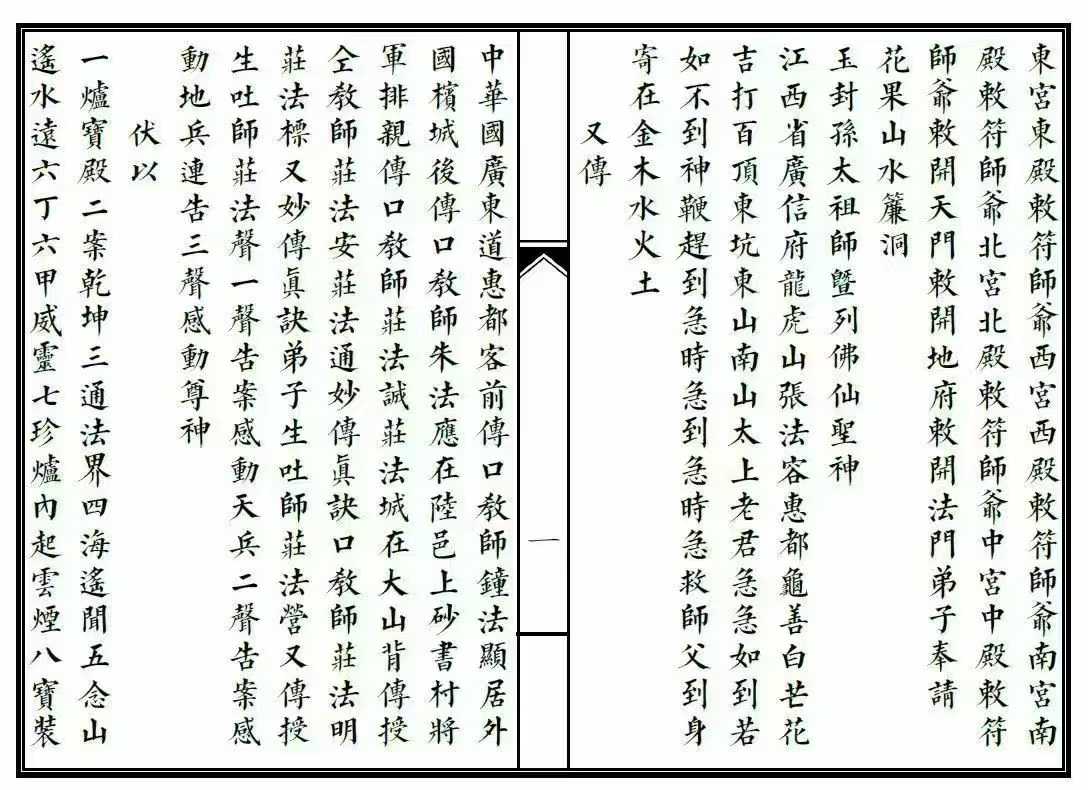 東宮東殿敕符師爺西宮西殿敕符師爺南宮南
殿敕符師爺北宮北殿敕符師爺中宮中殿敕符
師爺敕開天門敕開地府敕開法門弟子奉請
花果山水簾洞
玉封孫太祖師暨列佛仙聖神
江西省廣信府龍虎山張法容惠都龜善白芒花
吉打百頂東坑東山南山太上老君急急如到若
如不到神鞭趕到急時急到急時急救師父到身
寄在金木水火土
又傳
一
中華國廣東道惠都客前傳口敎師鐘法顯居外
國檳城後傳口敎師朱法應在陸邑上砂書村將
軍排親傳口敎師莊法誠莊法城在大山背傳授
仝敎師莊法安莊法通妙傳眞訣口敎師莊法明
莊法標又妙傳眞訣弟子生吐師莊法營又傳授
生吐師莊法聲一聲告案感動天兵二聲告案感
動地兵連告三聲感動尊神
伏以
一爐寶殿二案乾坤三通法界四海遙聞五念山
遙水遠六丁六甲威靈七珍爐內起雲煙八寶裝